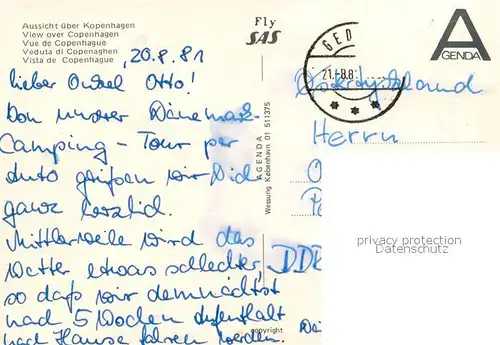 Aussicht über Kopenhagen
View over Copenhagen
Vue de Copenhague
Veduta di Copenaghen
Vista de Copenhague
Fly
SAS
A
AGENDA
GED
21.-8.8
20.8.81
lieber Onkel Otto!
Von unserer Dänemark-
Camping - Tour per
Auto grüßen wir Dich
ganz herzlich.
Mittlerweile wird das
Wetter etwas schlechter,
so daß wir demnächst
nach 5 Wochen Aufenthalt
nach Hause fahren werden.
AGENDA
Wessung København 01 511375
copyright
Herrn
DDR
privacy protection
DATENSCHUTZ